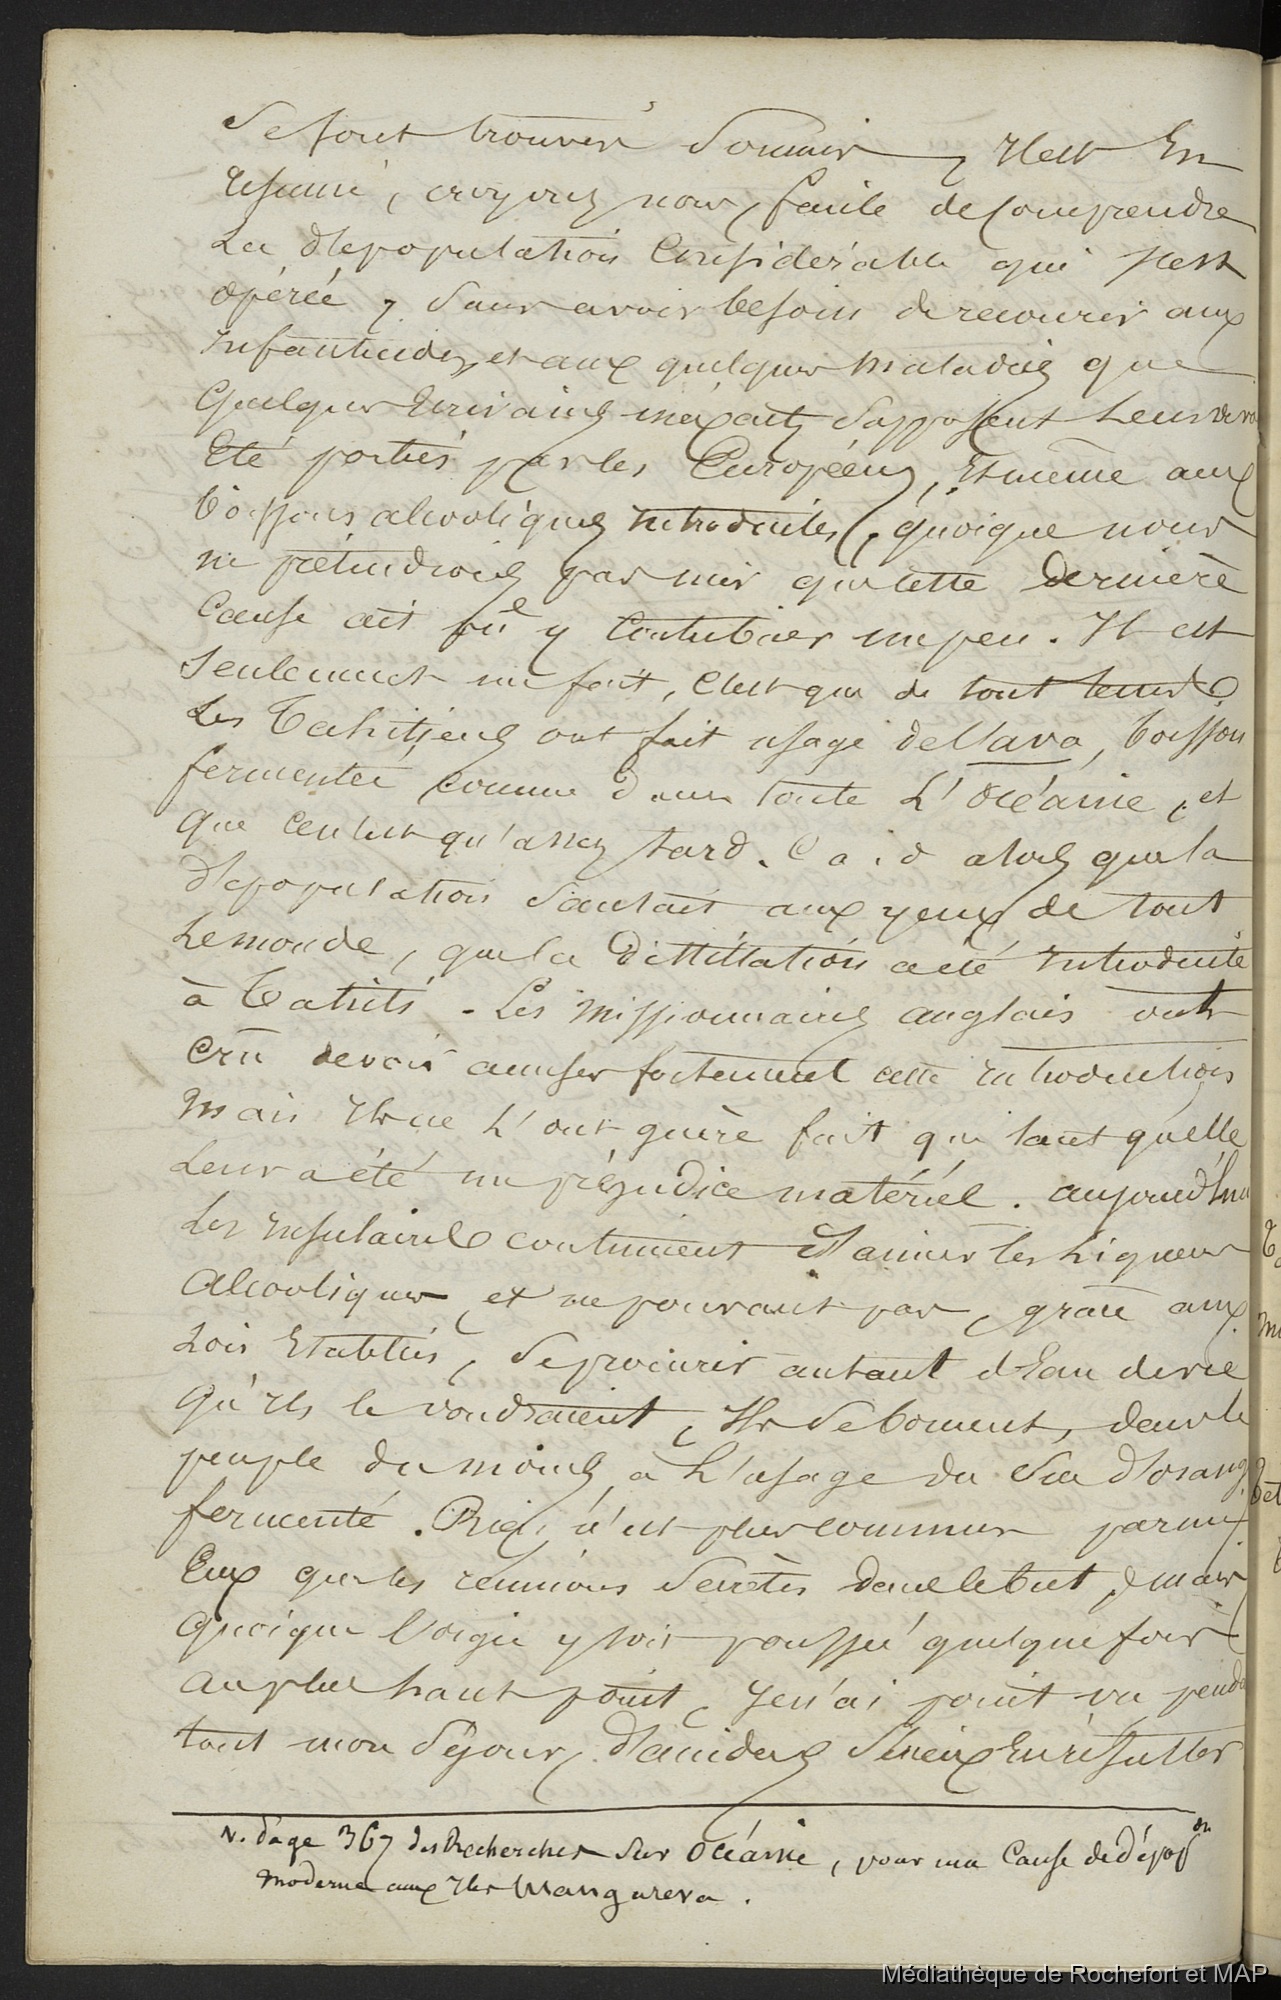 se font trouver soumis, Il est En
résumé, croyons nous, facile de comprendre
La dépopulation Considérable qui s'est
opérée, sans avoir besoin de recourir aux
Infanticides, et aux quelques maladies que
Quelques Ecrivains inexacts supposent Leur avoir
Eté portées par les Européens, Et même aux
boissons alcooliques Introduites, quoique nous
ne prétendions pas nier que cette dernière
Cause ait pû y Contribuer un peu. Il est
seulement un fait, c'est que de tout temps
Les Tahitiens ont fait usage de l'ava, boisson
fermentée comme dans toute L'Océanie, et
que ce n'est qu'assez tard. C. a. d alors que la
dépopulation sautait aux yeux de tout
Le monde, que la distillation a été Introduite
à Tahiti. Les missionnaires anglais ont
crû devoir accuser fortement cette Introduction
mais Ils ne L'ont guère fait que tant qu'elle
Leur a été un préjudice matériel. aujourd'hui
Les Insulaires continuent d'aimer les Liqueurs
Alcooliques, et ne pouvant pas, grâce aux
Lois Etablies, se procurer autant d'Eau de vie
qu'Ils le voudraient, Ils se bornent, dans le
peuple du moins, à L'usage du suc d'orange
fermenté. Rien n'est plus commun parmi
Eux que les réunions secrètes dans le but, mais
quoique l'orgie y soit poussée quelque fois
au plus haut point, Je n'ai point vu pendant
tout mon séjour, d'accidens sérieux En résulter
N. Page 367 des Recherches sur Océanie, pour une Cause de dépop.on
moderne aux Iles Mangareva.
Médiathèque de Rochefort et MAP